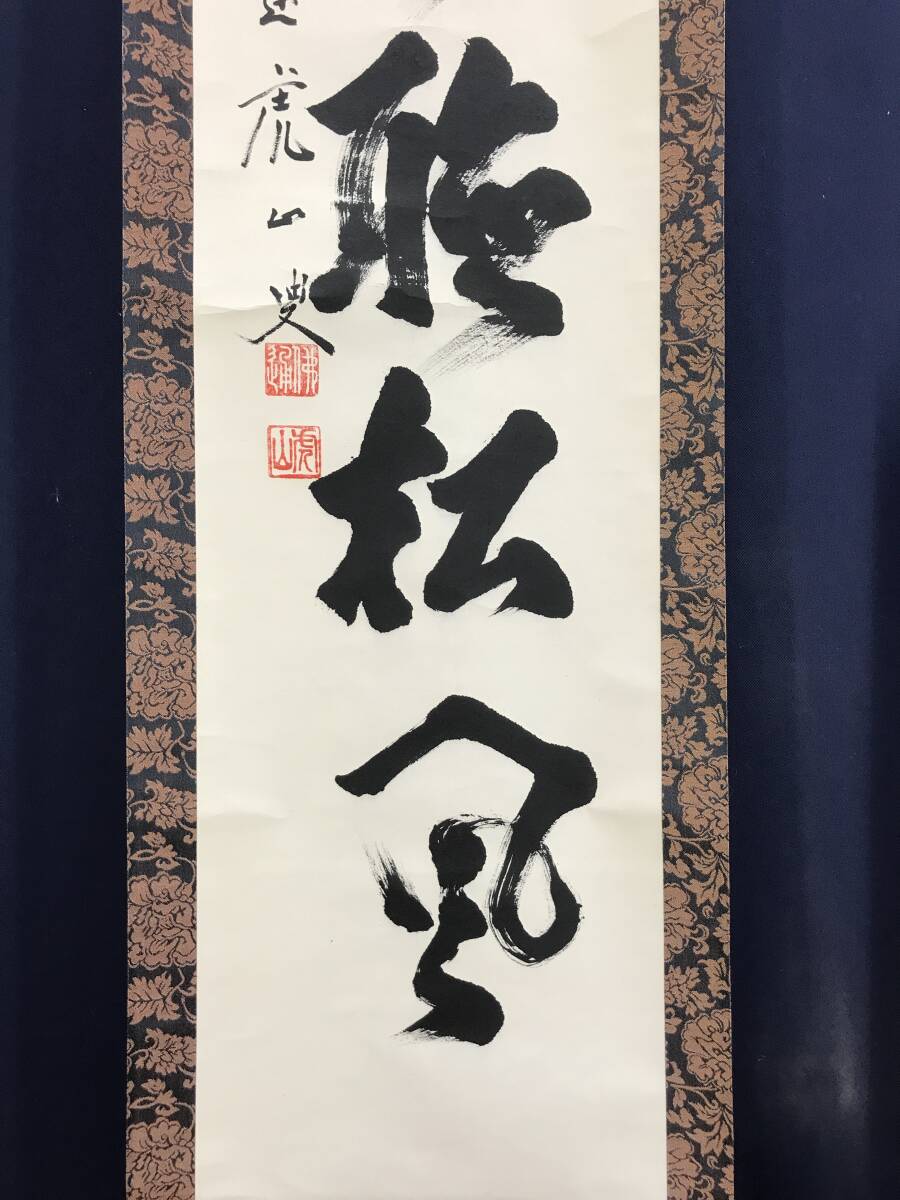 聴松風
虎山叟
佛通
虎山